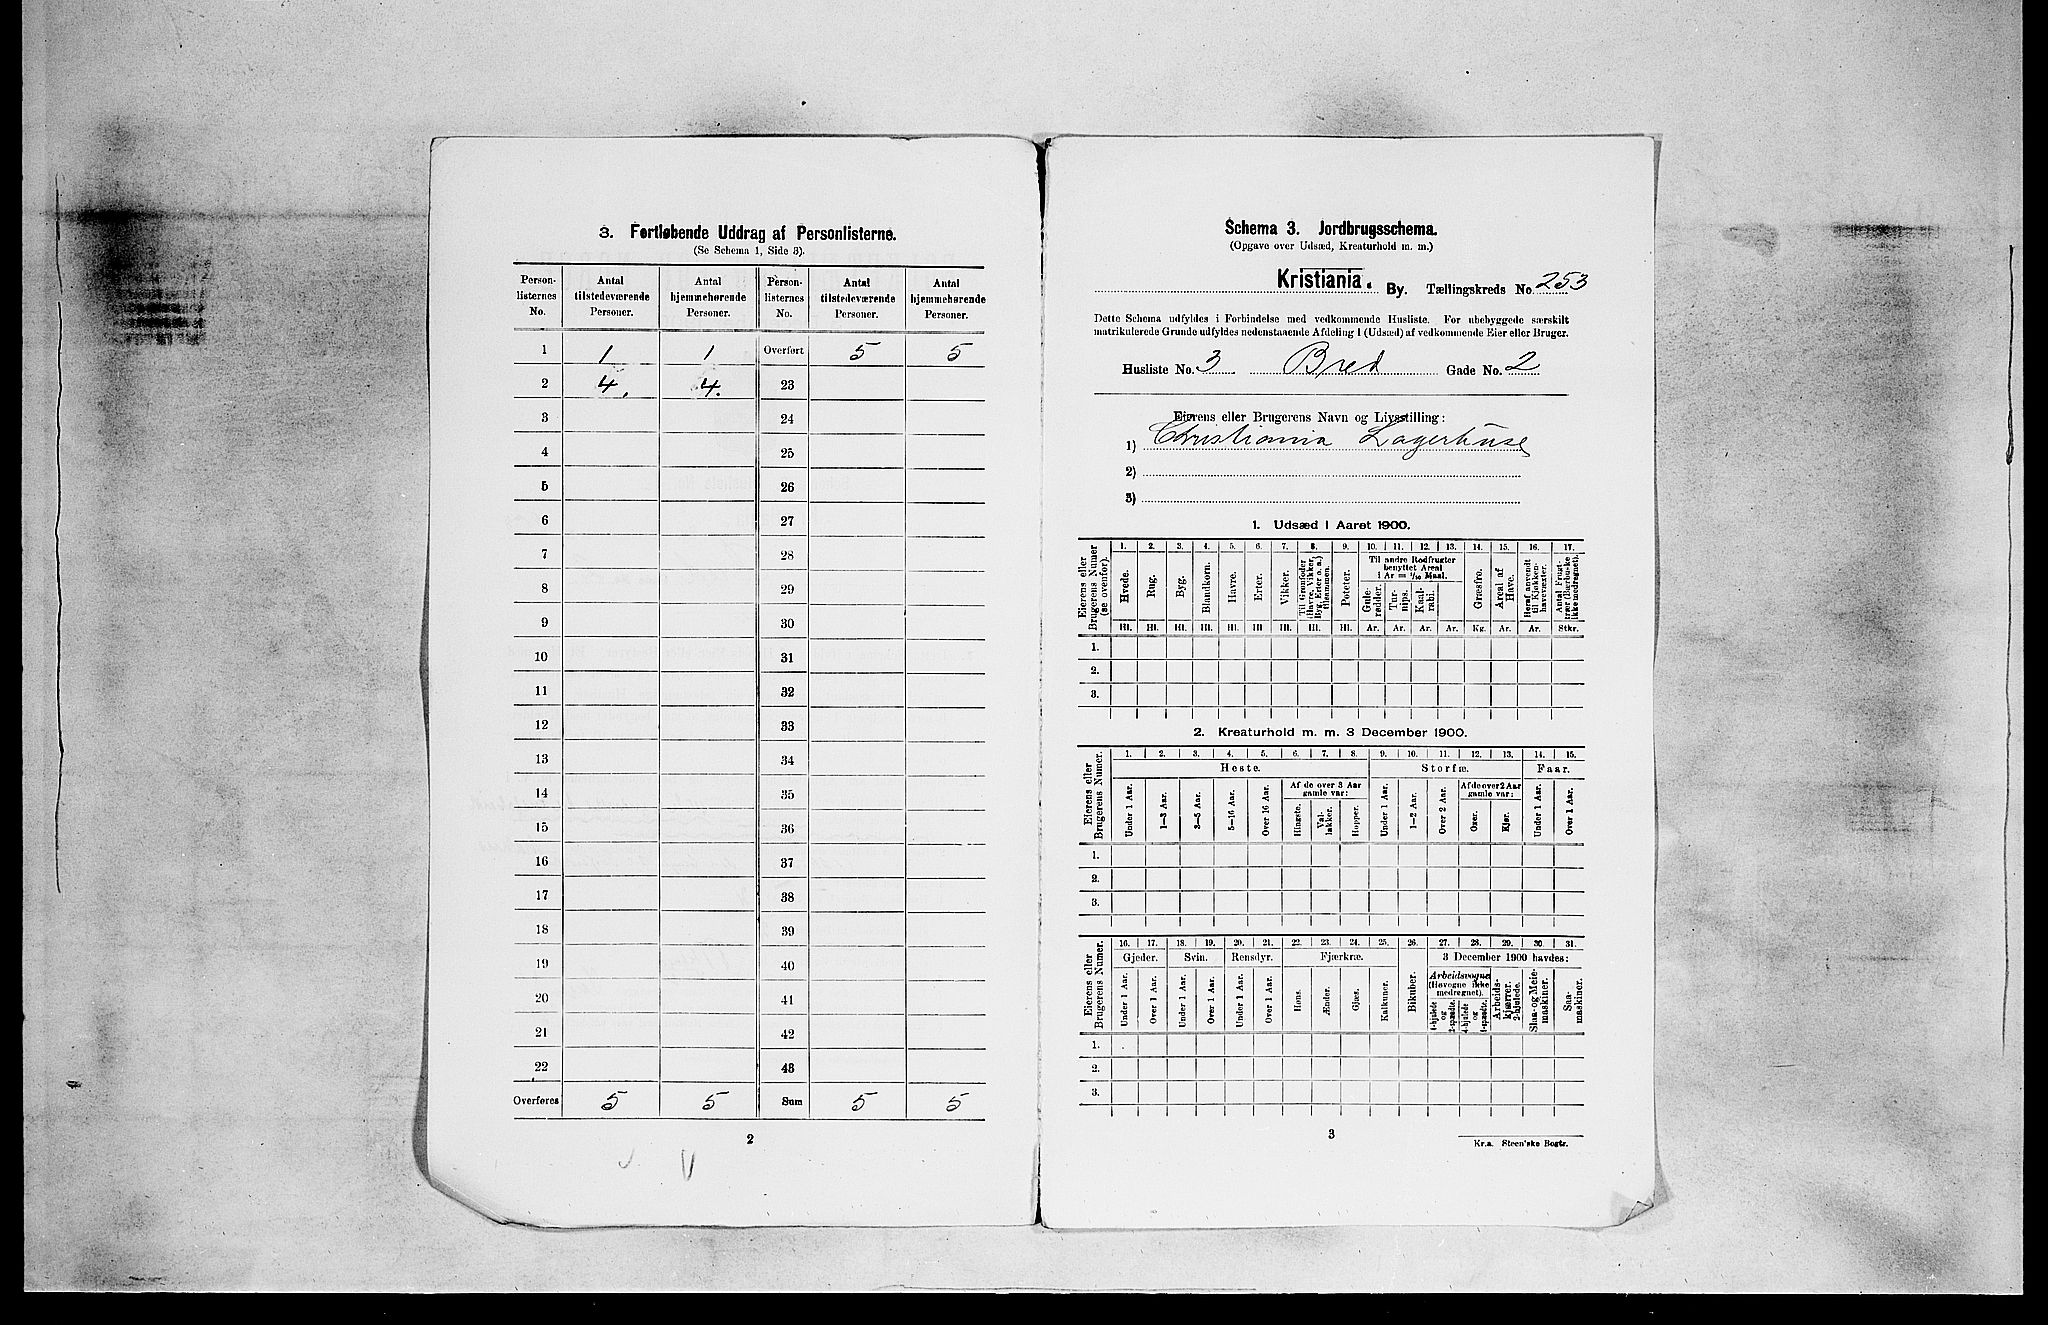 3. Fortløbende Uddrag af Personlisterne.
(Se Schema 1, Side 3).
Person-listernes No. | Antal tilstedeværende Personer. | Antal hjemmehørende Personer. | Person-listernes No. | Antal tilstedeværende Personer. | Antal hjemmehørende Personer.
1 | 1 | 1 | Overført | 5 | 5
2 | 4. | 4. | 23
3 | 24
4 | 25
5 | 26
6 | 27
7 | 28
8 | 29
9 | 30
10 | 31
11 | 32
12 | 33
13 | 34
14 | 35
15 | 36
16 | 37
17 | 38
18 | 39
19 | 40
20 | 41
21 | 42
22 | 43
Overføres | 5 | 5 | Sum | 5 | 5
2
Schema 3. Jordbrugsschema.
(Opgave over Udsæd, Kreaturhold m. m.)
Kristiania. By. Tællingskreds No. 253
Dette Schema udfyldes i Forbindelse med vedkommende Husliste. For ubebyggede særskilt
matrikulerede Grunde udfyldes nedenstaaende Afdeling 1 (Udsæd) af vedkommende Eier eller Bruger.
Husliste No. 3 Bred Gade No. 2
Eierens eller Brugerens Navn og Livsstilling:
1) Christiania Lagerhuse
2)
3)
1. Udsæd i Aaret 1900.
Eierens eller Brugerens Numer (se ovenfor).
1. 2. 3. 4. 5. 6. 7. 8. 9. 10. 11. 12. 13. 14. 15. 16. 17.
Hvede. Rug. Byg. Blandkorn. Havre. Erter. Vikker. Til Grønfoder (Havre, Vikker, Byg, Erter o. a.) tilsammen. Poteter.
Til andre Rodfrugter benyttet Areal i Ar = 1/10 Maal.
Gule-rødder. Tur-nips. Kaal-rabi. Græsfrø. Areal af Have. Heraf anvendt til Kjøkken-havevæxter. Antal Frugt-trær (Bærbuske ikke medregnet).
Hl. Hl. Hl. Hl. Hl. Hl. Hl. Hl. Hl. Ar. Ar. Ar. Ar. Kg. Ar. Ar. Stkr.
1.
2.
3.
2. Kreaturhold m. m. 3 December 1900.
Eierens eller Brugerens Numer.
1. 2. 3. 4. 5. 6. 7. 8. 9. 10. 11. 12. 13. 14. 15.
Heste. Storfæ. Faar.
Af de over 3 Aar gamle var: Af de over 2 Aar gamle var:
Under 1 Aar. 1—3 Aar. 3—5 Aar. 5—16 Aar. Over 16 Aar. Hingste. Val-lakker. Hopper. Under 1 Aar. 1—2 Aar. Over 2 Aar. Oxer. Kjør. Under 1 Aar. Over 1 Aar.
1.
2.
3.
Eierens eller Brugerens Numer.
16. 17. 18. 19. 20. 21. 22. 23. 24. 25. 26. 27. 28. 29. 30. 31.
Gjeder. Svin. Rensdyr. Fjærkræ. Bikuber. 3 December 1900 havdes:
Arbeidsvogne (Høvogne ikke medregnet).
Under 1 Aar. Over 1 Aar. Under 1 Aar. Over 1 Aar. Under 1 Aar. Over 1 Aar. Høns. Ænder. Gjæs. Kalkuner. 4-hjulede og 2-spændte. 4-hjulede og 1-spændte. Arbeids-kjærrer, 2-hjulede. Slaa- og Meie-maskiner. Saa-maskiner.
1.
2.
3.
3
Kr.a. Steen'ske Bogtr.